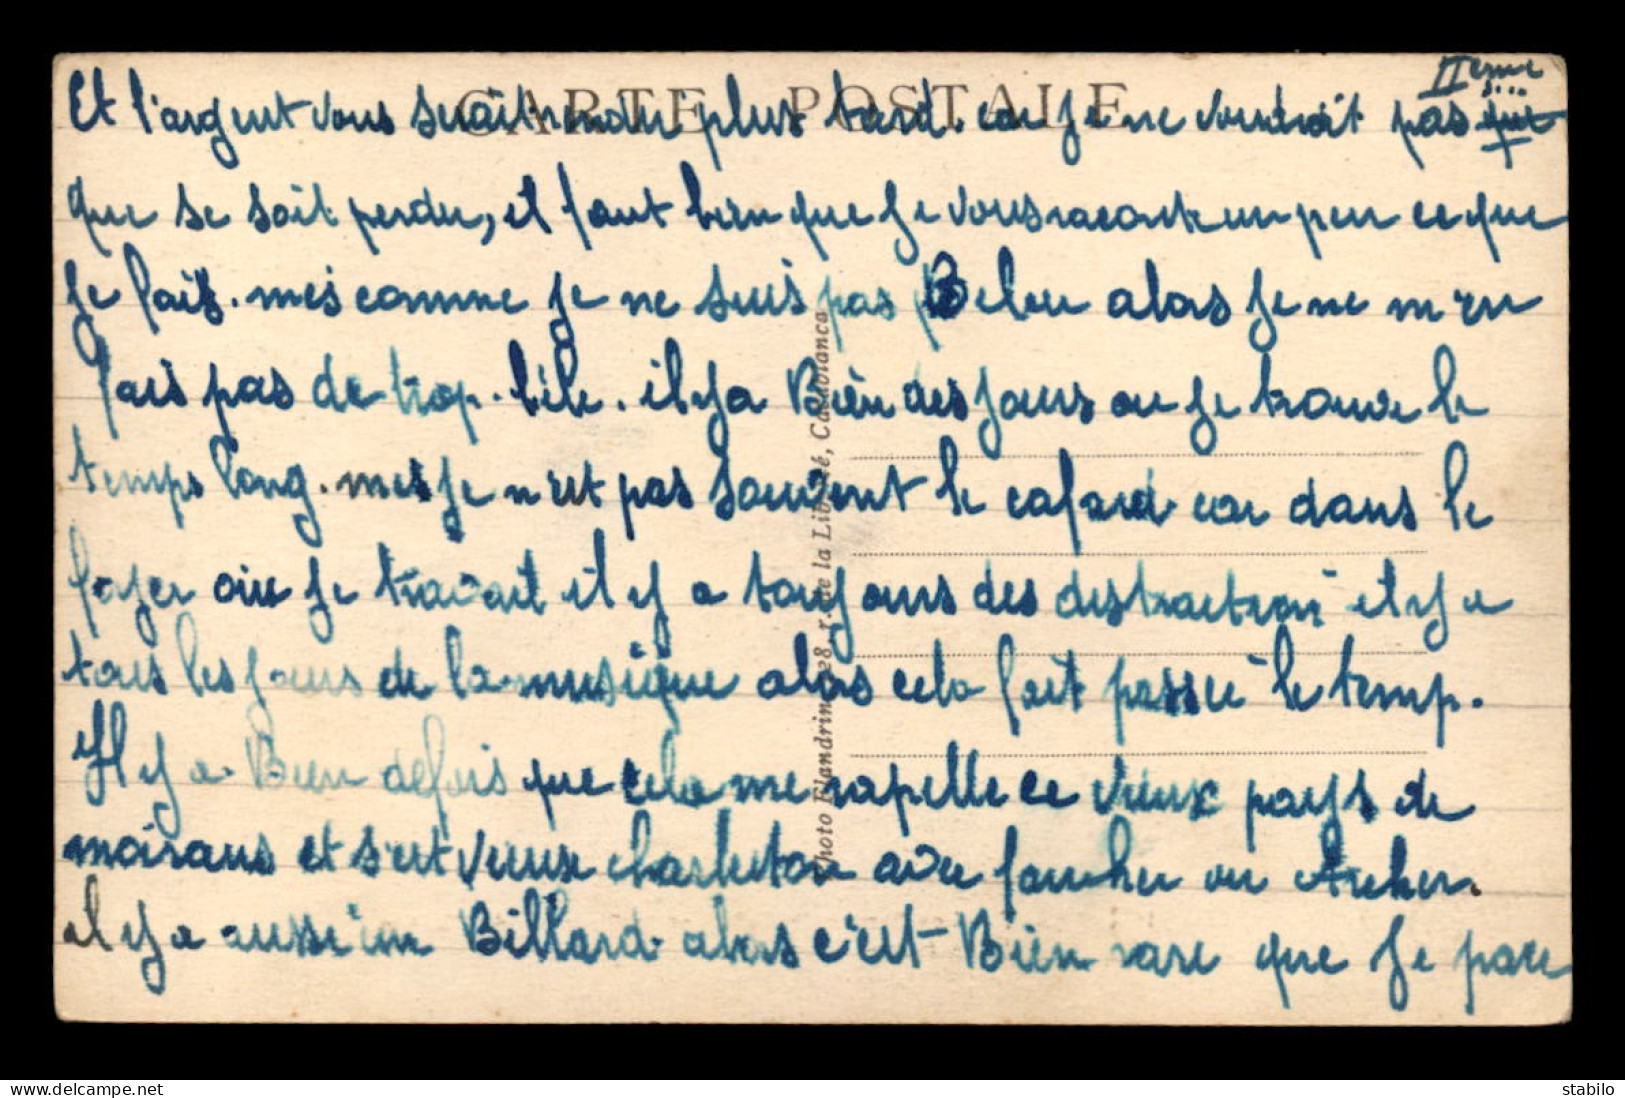 IIeme s...
CARTE POSTALE
Et l'argent vous serait rendu plus tard. car je ne voudrait pas que
que se soit perdu, il faut bien que je vous raconte un peu ce que
je fais. mes comme je ne suis pas Beleu alors je ne m'en
fais pas de trop. bile. il y a Bien des jours ou je trouve le
temps long. mes je n'est pas souvent le cafard. car dans le
foyer ou je travail il y a toujours des distraction il y a
tous les jours de la musique alors cela fait passé le temp.
Il y a Bien des fois que cela me rapelle ce vieux pays de
moirans et s'est vieux charleston avec faucher ou
il y a aussi un Billard. alors c'est Bien rare que je
Photo Flandrin, 28, r. de la Liberté, Casablanca
stabilo
delcampe.net